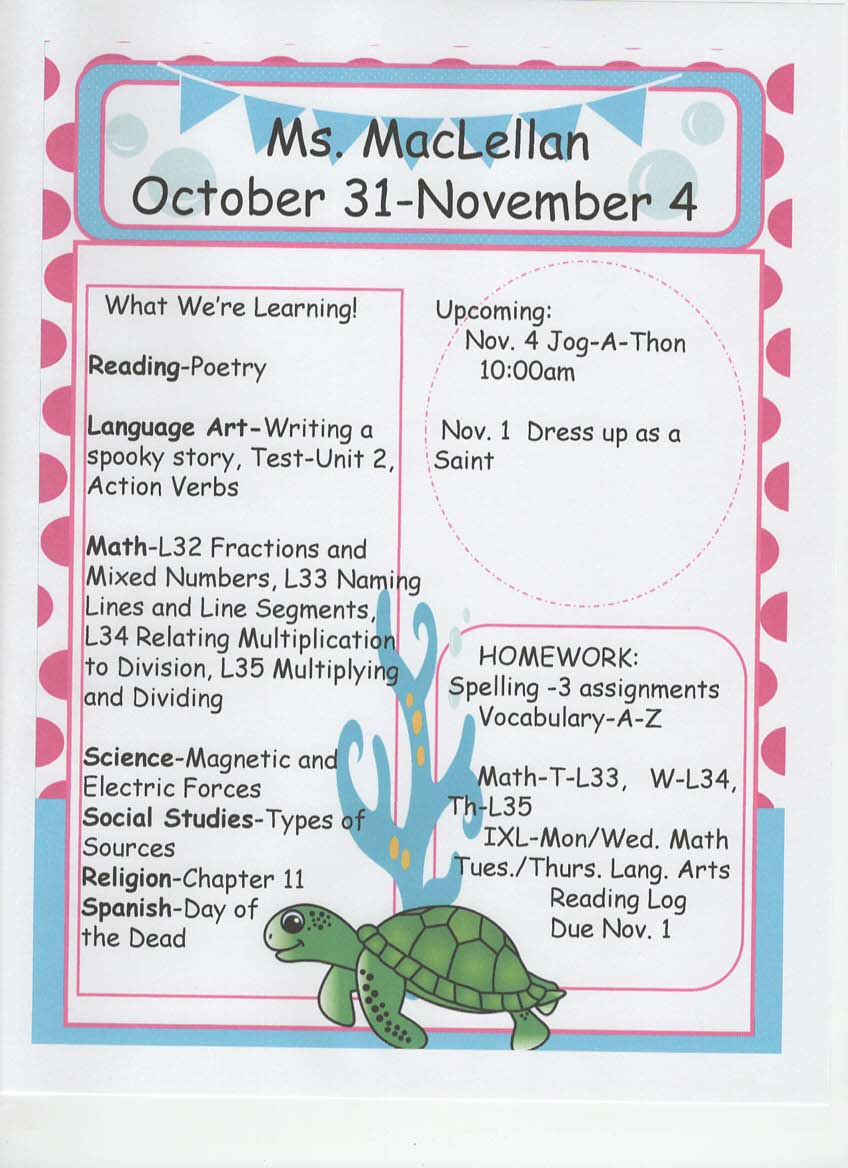 Ms. MacLellan
October 31-November 4
What We're Learning!
Reading-Poetry
Language Art-Writing a
spooky story, Test-Unit 2,
Action Verbs
Math-L32 Fractions and
Mixed Numbers, L33 Naming
Lines and Line Segments,
L34 Relating Multiplication
to Division, L35 Multiplying
and Dividing
Science-Magnetic and
Electric Forces
Social Studies-Types of
Sources
Religion-Chapter 11
Spanish-Day of
the Dead
Upcoming:
Nov. 4 Jog-A-Thon
10:00am
Nov. 1 Dress up as a
Saint
HOMEWORK:
Spelling -3 assignments
Vocabulary-A-Z
Math-T-L33, W-L34,
Th-L35
IXL-Mon/Wed. Math
Tues./Thurs. Lang. Arts
Reading Log
Due Nov. 1